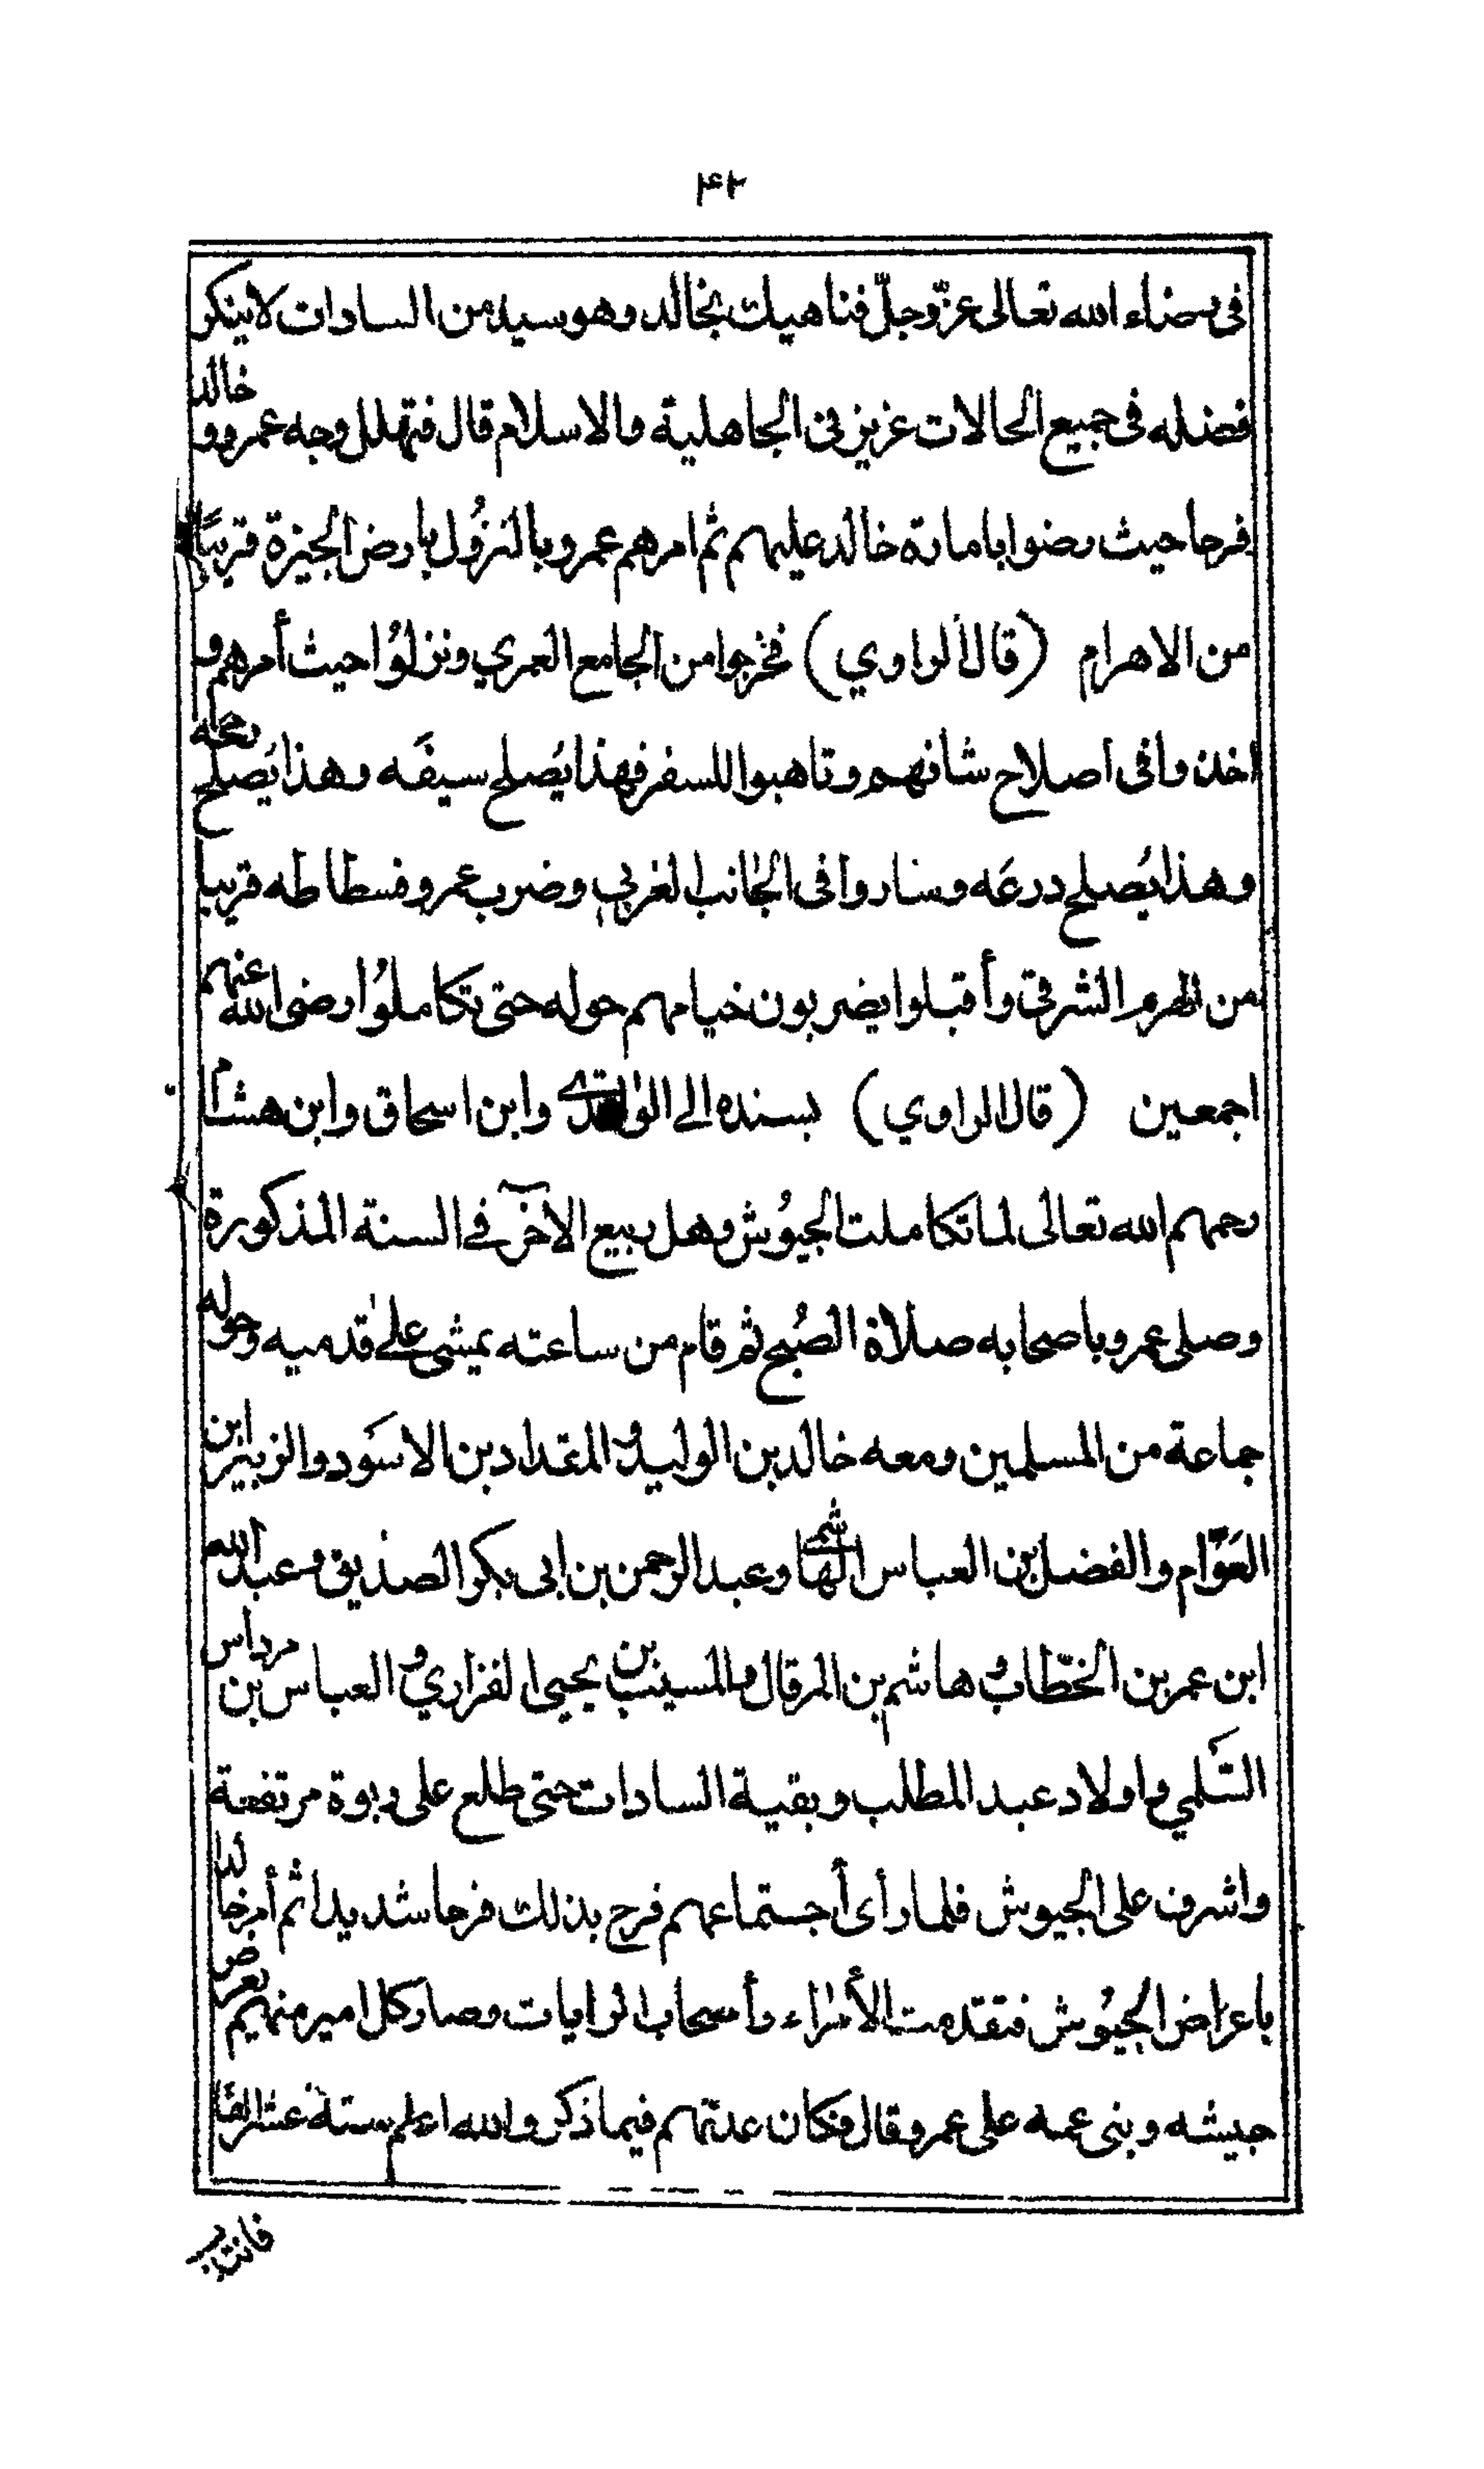 ۴۲
فى رضاء الله تعالى عزّوجلّ فناهيك بخالد وهو سيد من السادات لاينكر
فضله فى جميع الحالات عزيز فى الجاهلية والاسلام قال فتهلل وجه عمرو و خالد
فرحا حيث رضوا بامارة خالد عليهم ثم امرهم عمرو بالنزُول بارض الجيزة قريبًا
من الاهرام (قال الراوي) فخرجوا من الجامع العمري ونزلوُا حيث أمرهم و
اخذوا فى اصلاح شانهم وتاهبوا للسفر فهذا يُصلح سيفَه وهذا يُصلح رمحه
وهذا يُصلح درعَه وساروا فى الجانب الغربي وضرب عمرو فسطاطه قريبا
من الهرم الشرقى وأقبلوا يضربون خيامهم حوله حتى تكاملوُا رضى الله عنهم
اجمعين (قال الراوي) بسنده الى الواقدى وابن اسحاق وابن هشام
رحمهم الله تعالى لما تكاملت الجيُوش وهل ربيع الآخر في السنة المذكورة
وصلى عمرو باصحابه صلاة الصُبح ثم قام من ساعته يمشى على قدميه وحوله
جماعة من المسلمين ومعه خالد بن الوليد و المقداد بن الاسَود والزبير ابن
العَوّام والفضل بن العباس الهاشمى وعبد الرحمن بن ابى بكر الصديق وعبد الله
ابن عمر بن الخطّاب و هاشم بن المرقال والمسيب بن يحيى الفزاري و العباس بن مرداس
السَلمي واولاد عبد المطلب وبقية السادات حتى طلع على ربوة مرتفعة
واشرف على الجيوش فلما رأى أجتماعهم فرح بذلك فرحا شديدا ثم أمر خالدا
باعراض الجيُوش فتقدمت الأمراء وأصحاب الرايات وصار كل امير منهم يعرض
جيشه وبنى عمه على عمرو قال فكان عدتهم فيما ذكر والله اعلم ستة عشر الفا
فانتدب